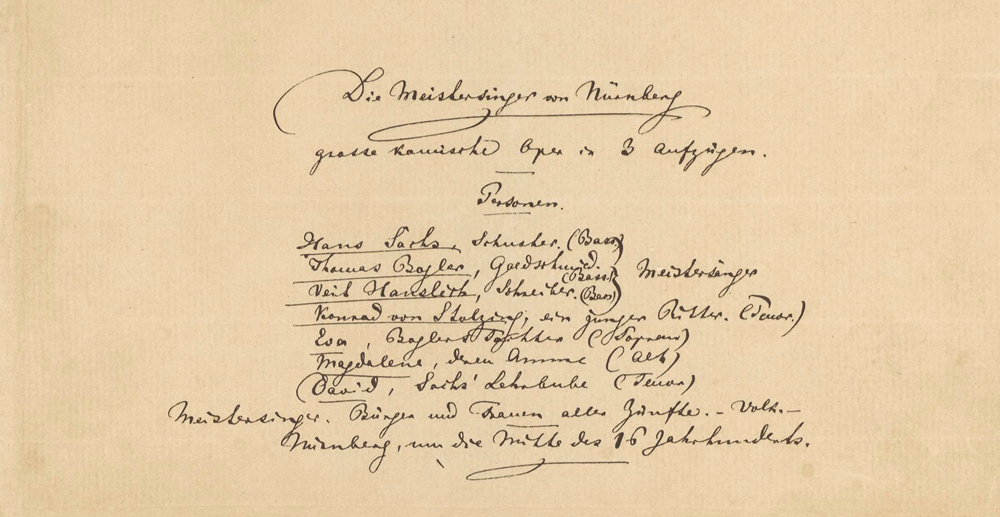 Die Meistersinger von Nürnberg
grosse komische Oper in 3 Aufzügen.
Personen.
Hans Sachs, Schuster. (Bass)
Thomas Bogler, Goldschmied. (Bass) Meistersänger
Veit Hanslich, Schreiber. (Bass)
Konrad von Stolzing, ein junger Ritter. (Tenor.)
Eva, Boglers Tochter (Sopran)
Magdalene, deren Amme (Alt)
(David, Sachs' Lehrbube (Tenor)
Meistersinger. Bürger und Frauen aller Zünfte. – Volk. –
Nürnberg, um die Mitte des 16 Jahrhunderts.